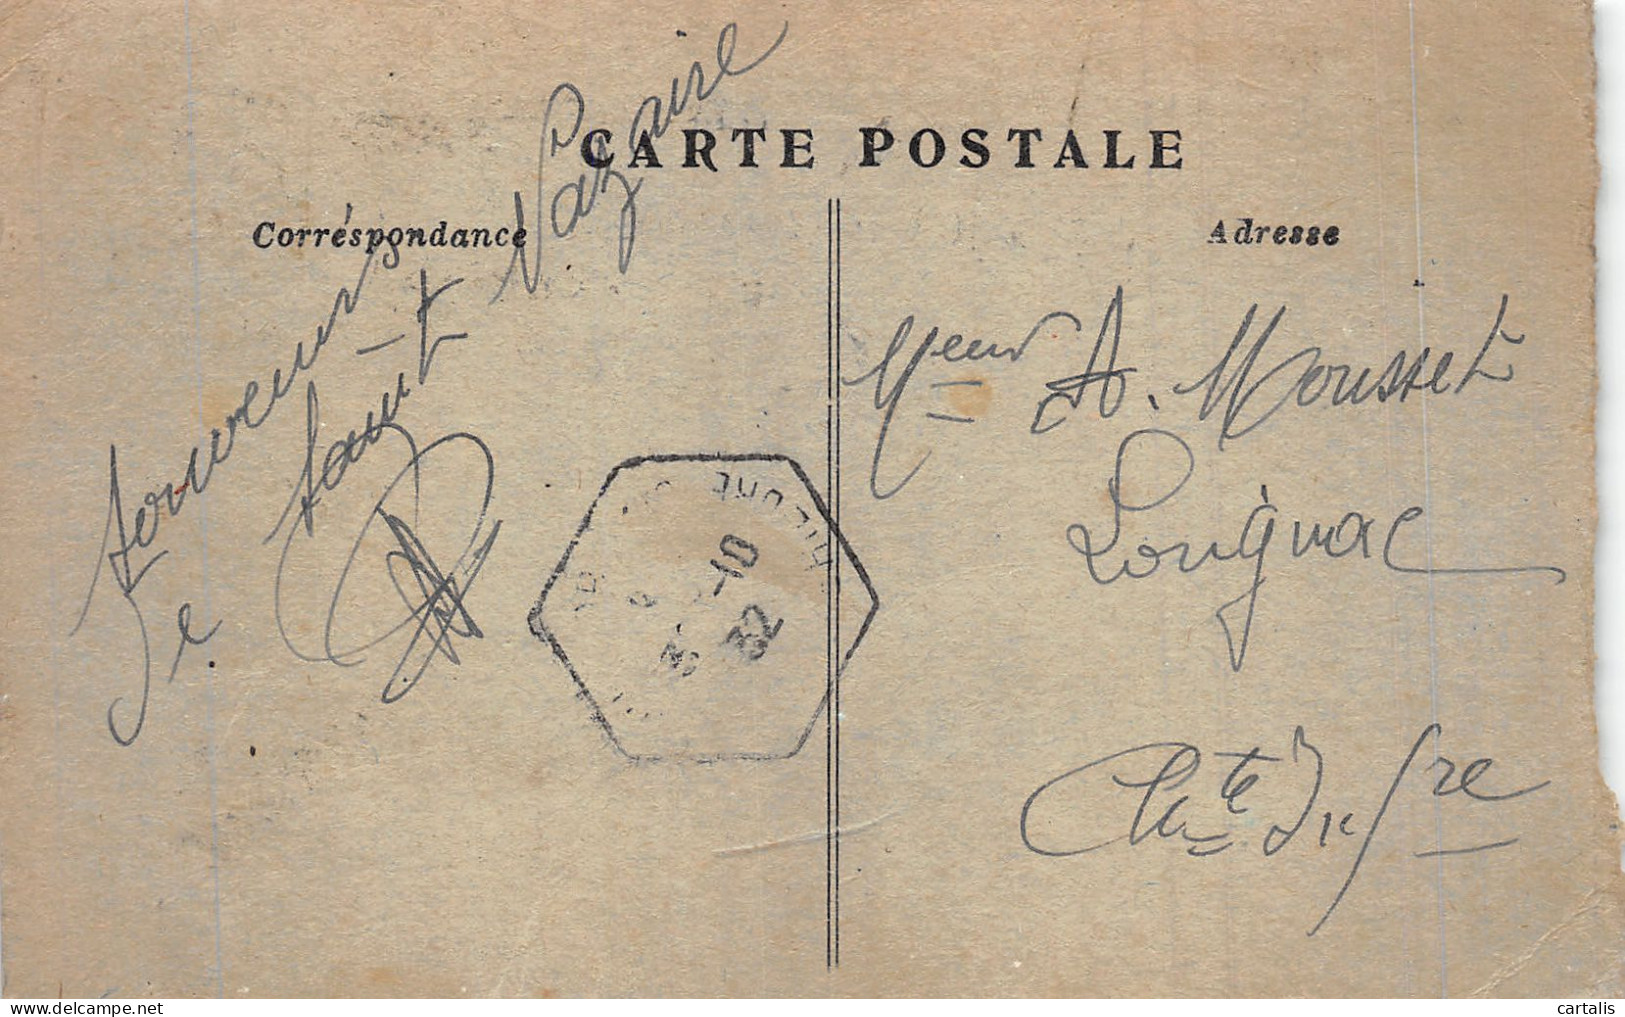 CARTE POSTALE
Correspondance
Adresse
Souvenir
de Saint-Nazaire
Mr A. Mousset
Lorignac
Chte Infre
-10
32
cartalis